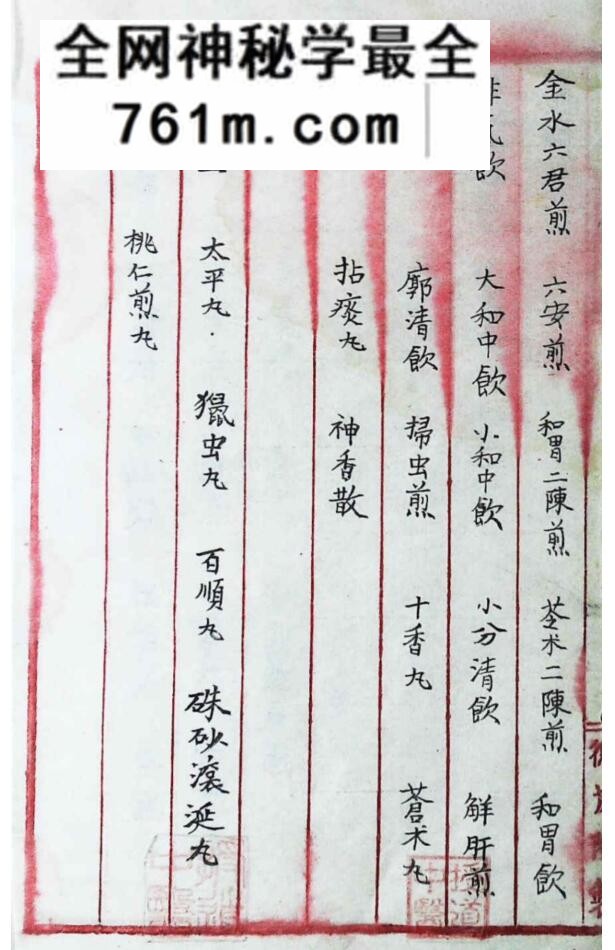 全网神秘学最全
761m.com
金水六君煎 六安煎 和胃二陳煎 苓术二陳煎 和胃飲
飲 大和中飲 小和中飲 小分清飲 鮮肝煎
廓清飲 掃虫煎 十香丸 蒼术丸
拈痰丸 神香散
太平丸 獵虫丸 百順丸 硃砂滾涎丸
桃仁煎丸